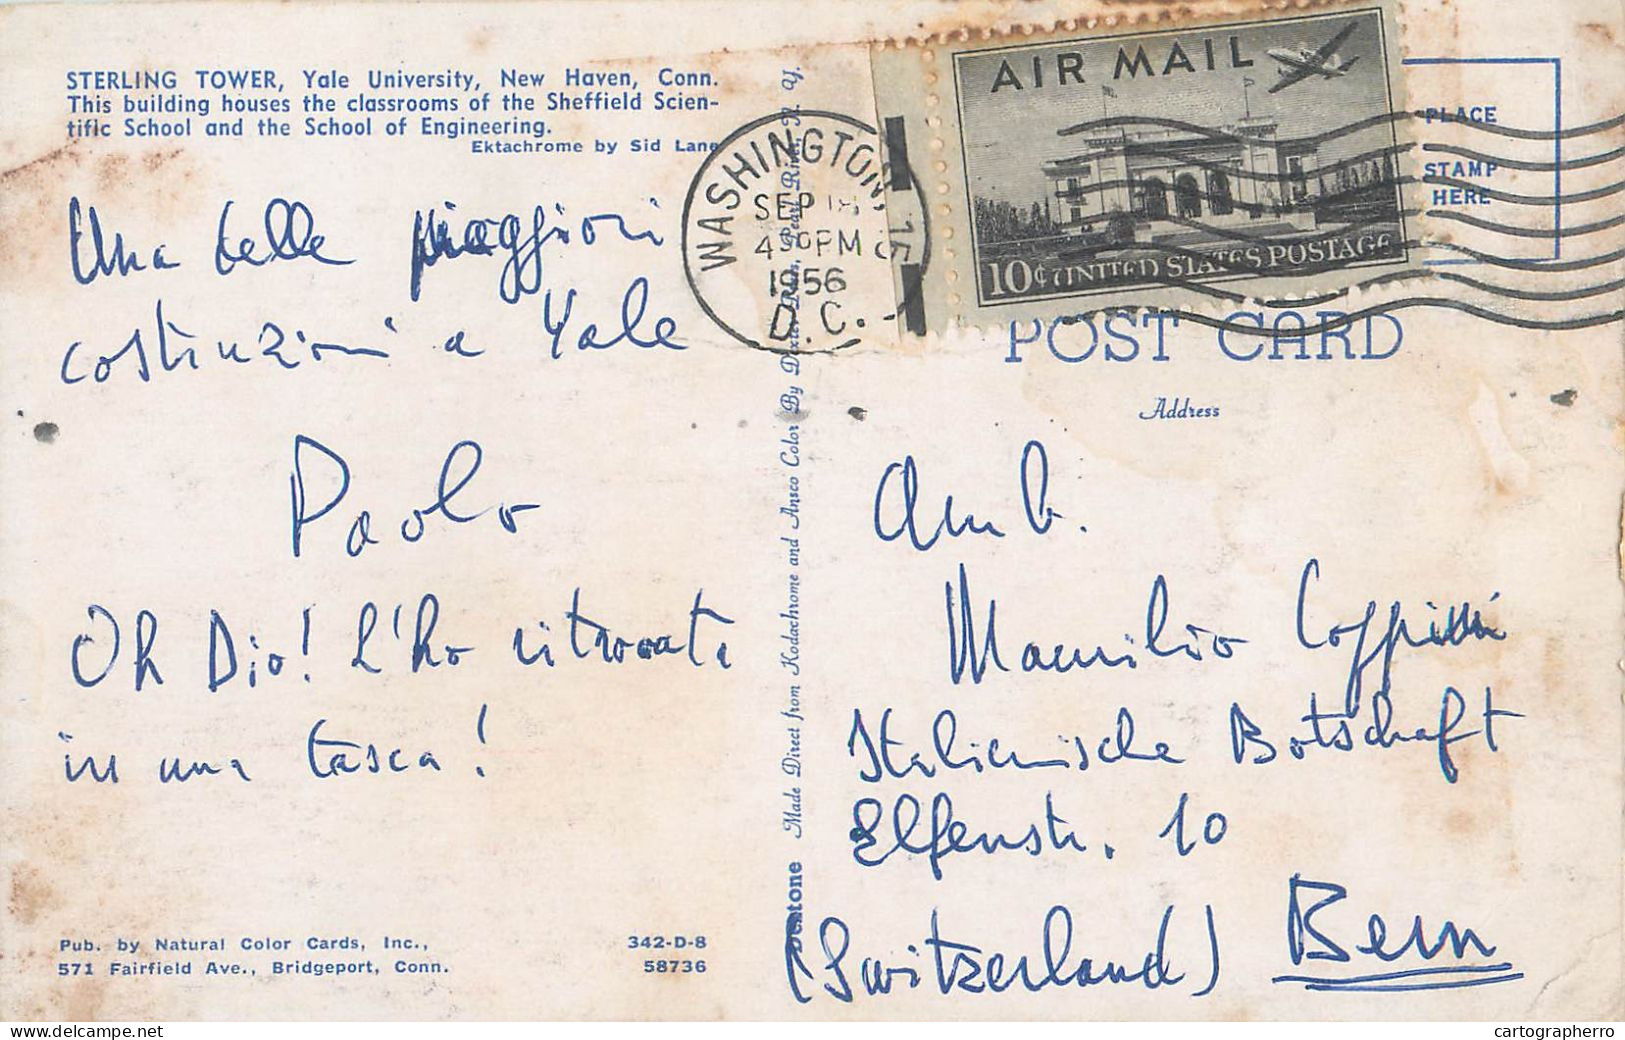 STERLING TOWER, Yale University, New Haven, Conn.
This building houses the classrooms of the Sheffield Scien-
tific School and the School of Engineering.
Ektachrome by Sid Lane
Una delle maggiori
costruzioni a Yale
Paolo
Oh Dio! L'ho ritrovata
in una tasca!
Pub. by Natural Color Cards, Inc.,
571 Fairfield Ave., Bridgeport, Conn.
342-D-8
58736
Dextone Made Direct from Kodachrome and Ansco Color By Dexter Press, Pearl River, N. Y.
WASHINGTON, 15
SEP 18
4 30 PM
1956
D. C.
AIR MAIL
10¢ UNITED STATES POSTAGE
PLACE
STAMP
HERE
POST CARD
Address
Amb.
Mamilio Coppini
Italienische Botschaft
Elfenstr. 10
(Switzerland) Bern
delcampe.net
cartographerro